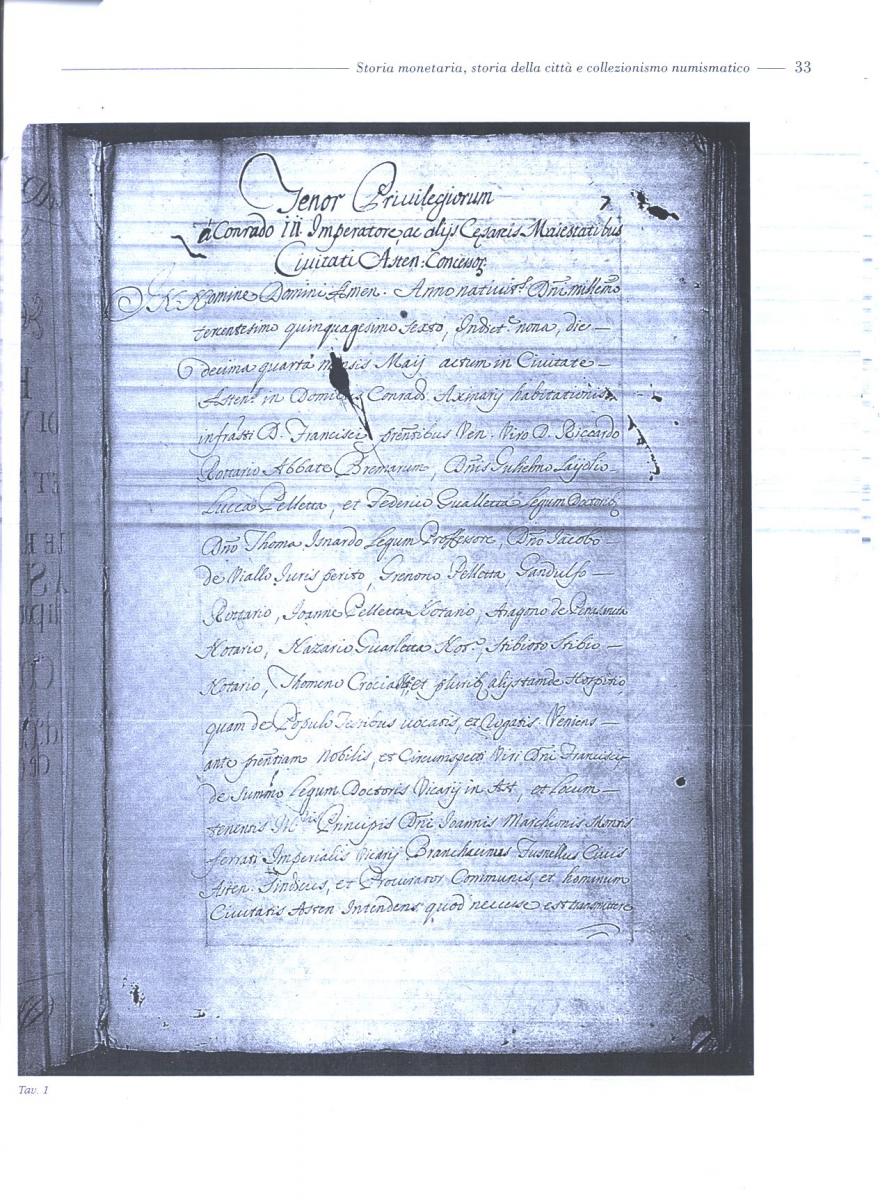 Storia monetaria, storia della città e collezionismo numismatico 33
Tenor Privilegiorum
7
à Conrado iii Imperatore, ac alijs Cesareis Maiestatibus
Civitati Asten: Concessor
In Nomine Domini Amen. Anno nativit.s Dni millemo
tercentesimo quinquagesimo sexto, Indict.e nona, die
decima quarta mensis Maij actum in Civitate
Asten: in Domibus Conradi Axinarij habitationis
infrasti D. Francisci prentibus Ven. Viro D. Riccardo
Rottario Abbate Bremarum, Dnis Gulielmo Layolio
Lucca Pelletta, et Federico Gualletta legum Doctorib
Dno Thoma Isnardo legum Proffessore, Dno Iacobo
de Viallo Iuris perito, Grenono Pelletta, Gandulfo
Rottario, Ioanne Pelletta Notario, Aragono de
Notario, Nazario Guarletta Not.o, Stibioto Stibio
Notario, Thomeno et plurib alijs tam de Hospitio,
quam de Populo Testibus vocatis, et Rogatis. Veniens
ante prentiam Nobilis, et Circumspecti Viri Dni Francisci
de Summo legum Doctoris Vicarij in Ast, et Locum
tenentis Principis Dni Ioannis Marchionis Montis
ferrati Imperialis Vicarij Branchacinus Tusnellus Civis
Asten: Sindicus, et Procurator Communis, et hominum
Civitatis Asten Intendens quod necesse est transmittere
Tav. 1